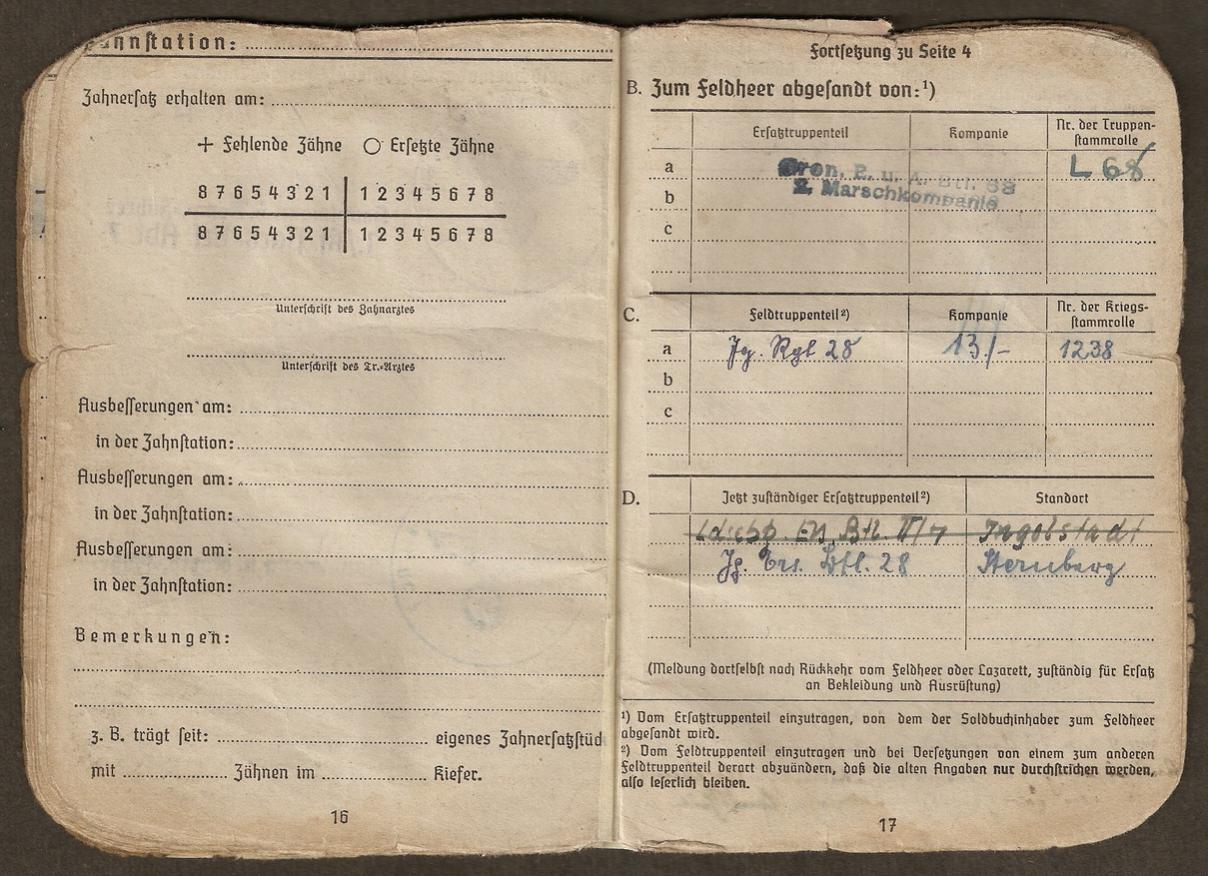 Zahnstation:
Zahnersatz erhalten am:
+ Fehlende Zähne ○ Ersetzte Zähne
8 7 6 5 4 3 2 1 | 1 2 3 4 5 6 7 8
8 7 6 5 4 3 2 1 | 1 2 3 4 5 6 7 8
Unterschrift des Zahnarztes
Unterschrift des Tr.-Arztes
Ausbesserungen am:
in der Zahnstation:
Ausbesserungen am:
in der Zahnstation:
Ausbesserungen am:
in der Zahnstation:
Bemerkungen:
z. B. trägt seit: eigenes Zahnersatzstüc
mit Zähnen im Kiefer.
16
Fortsetzung zu Seite 4
B. Zum Feldheer abgesandt von:¹)
Ersatztruppenteil Kompanie Nr. der Truppen-
stammrolle
a L 68
2. Marschkompanie
b
c
C. Feldtruppenteil²) Kompanie Nr. der Kriegs-
stammrolle
a Jg. Rgt 28 13./- 1238
b
c
D. Jetzt zuständiger Ersatztruppenteil²) Standort
Btl. II/7 Ingolstadt
Jg. Ers. Btl. 28 Sternberg
(Meldung dortselbst nach Rückkehr vom Feldheer oder Lazarett, zuständig für Ersatz
an Bekleidung und Ausrüstung)
¹) Vom Ersatztruppenteil einzutragen, von dem der Soldbuchinhaber zum Feldheer
abgesandt wird.
²) Vom Feldtruppenteil einzutragen und bei Versetzungen von einem zum anderen
Feldtruppenteil derart abzuändern, daß die alten Angaben nur durchstrichen werden,
also leserlich bleiben.
17